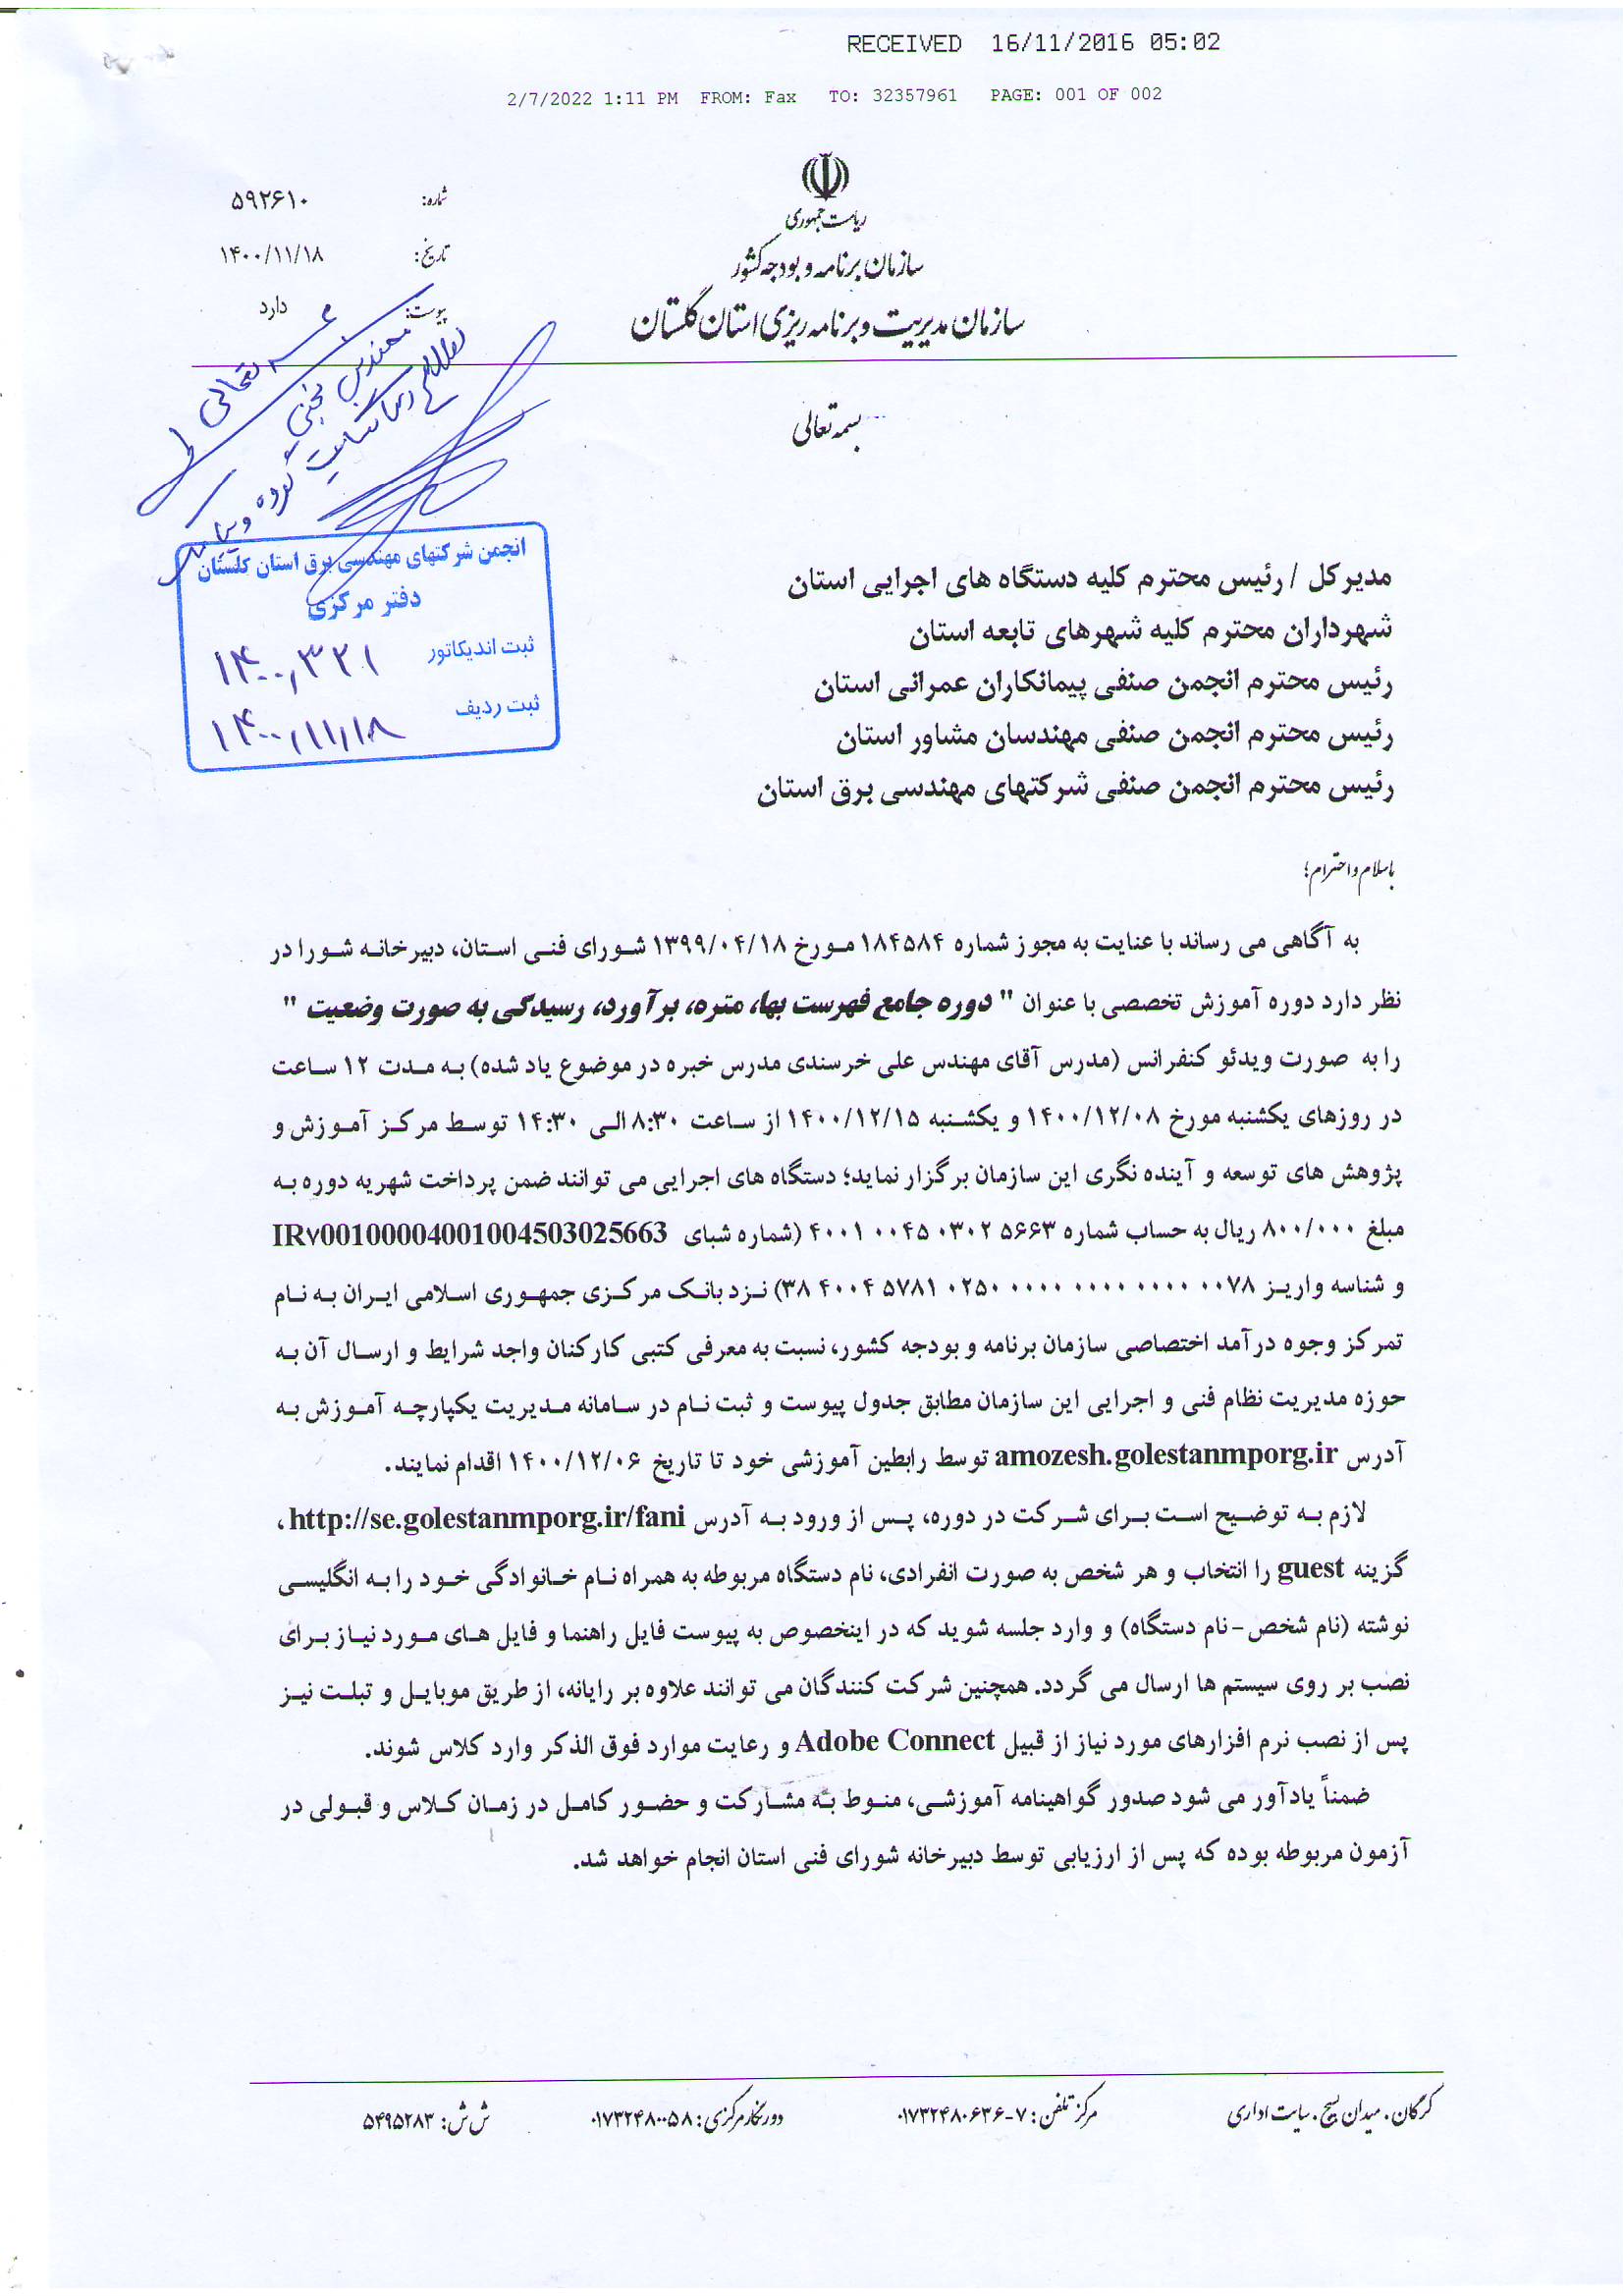 RECEIVED 16/11/2016 05:02
2/7/2022 1:11 PM FROM: Fax TO: 32357961 PAGE: 001 OF 002
ریاست جمهوری
سازمان برنامه و بودجه کشور
سازمان مدیریت و برنامه ریزی استان گلستان
شماره: ۵۹۲۶۱۰
تاریخ: ۱۴۰۰/۱۱/۱۸
پیوست: دارد
بسمه تعالی
انجمن شرکتهای مهندسی برق استان گلستان
دفتر مرکزی
ثبت اندیکاتور ۱۴۰۰٫۳۲۱
ثبت ردیف ۱۴۰۰٫۱۱٫۱۸
مدیرکل / رئیس محترم کلیه دستگاه های اجرایی استان
شهرداران محترم کلیه شهرهای تابعه استان
رئیس محترم انجمن صنفی پیمانکاران عمرانی استان
رئیس محترم انجمن صنفی مهندسان مشاور استان
رئیس محترم انجمن صنفی شرکتهای مهندسی برق استان
باسلام و احترام؛
به آگاهی می رساند با عنایت به مجوز شماره ۱۸۴۵۸۴ مورخ ۱۳۹۹/۰۴/۱۸ شورای فنی استان، دبیرخانه شورا در
نظر دارد دوره آموزش تخصصی با عنوان " دوره جامع فهرست بها، متره، برآورد، رسیدگی به صورت وضعیت "
را به صورت ویدئو کنفرانس (مدرس آقای مهندس علی خرسندی مدرس خبره در موضوع یاد شده) به مدت ۱۲ ساعت
در روزهای یکشنبه مورخ ۱۴۰۰/۱۲/۰۸ و یکشنبه ۱۴۰۰/۱۲/۱۵ از ساعت ۸:۳۰ الی ۱۴:۳۰ توسط مرکز آموزش و
پژوهش های توسعه و آینده نگری این سازمان برگزار نماید؛ دستگاه های اجرایی می توانند ضمن پرداخت شهریه دوره به
مبلغ ۸۰۰/۰۰۰ ریال به حساب شماره ۵۶۶۳ ۰۳۰۲ ۰۰۴۵ ۴۰۰۱ (شماره شبای IR۷00100004001004503025663
و شناسه واریز ۰۰۷۸ ۰۰۰۰ ۰۰۰۰ ۰۰۰۰ ۰۲۵۰ ۵۷۸۱ ۴۰۰۴ ۳۸) نزد بانک مرکزی جمهوری اسلامی ایران به نام
تمرکز وجوه درآمد اختصاصی سازمان برنامه و بودجه کشور، نسبت به معرفی کتبی کارکنان واجد شرایط و ارسال آن به
حوزه مدیریت نظام فنی و اجرایی این سازمان مطابق جدول پیوست و ثبت نام در سامانه مدیریت یکپارچه آموزش به
آدرس amozesh.golestanmporg.ir توسط رابطین آموزشی خود تا تاریخ ۱۴۰۰/۱۲/۰۶ اقدام نمایند.
لازم به توضیح است برای شرکت در دوره، پس از ورود به آدرس http://se.golestanmporg.ir/fani ،
گزینه guest را انتخاب و هر شخص به صورت انفرادی، نام دستگاه مربوطه به همراه نام خانوادگی خود را به انگلیسی
نوشته (نام شخص-نام دستگاه) و وارد جلسه شوید که در اینخصوص به پیوست فایل راهنما و فایل های مورد نیاز برای
نصب بر روی سیستم ها ارسال می گردد. همچنین شرکت کنندگان می توانند علاوه بر رایانه، از طریق موبایل و تبلت نیز
پس از نصب نرم افزارهای مورد نیاز از قبیل Adobe Connect و رعایت موارد فوق الذکر وارد کلاس شوند.
ضمناً یادآور می شود صدور گواهینامه آموزشی، منوط به مشارکت و حضور کامل در زمان کلاس و قبولی در
آزمون مربوطه بوده که پس از ارزیابی توسط دبیرخانه شورای فنی استان انجام خواهد شد.
گرگان. میدان بسیج. سایت اداری مرکز تلفن: ۷-۰۱۷۳۲۴۸۰۶۳۶ دورنگار مرکزی: ۰۱۷۳۲۴۸۰۰۵۸ ش ش: ۵۴۹۵۲۸۳